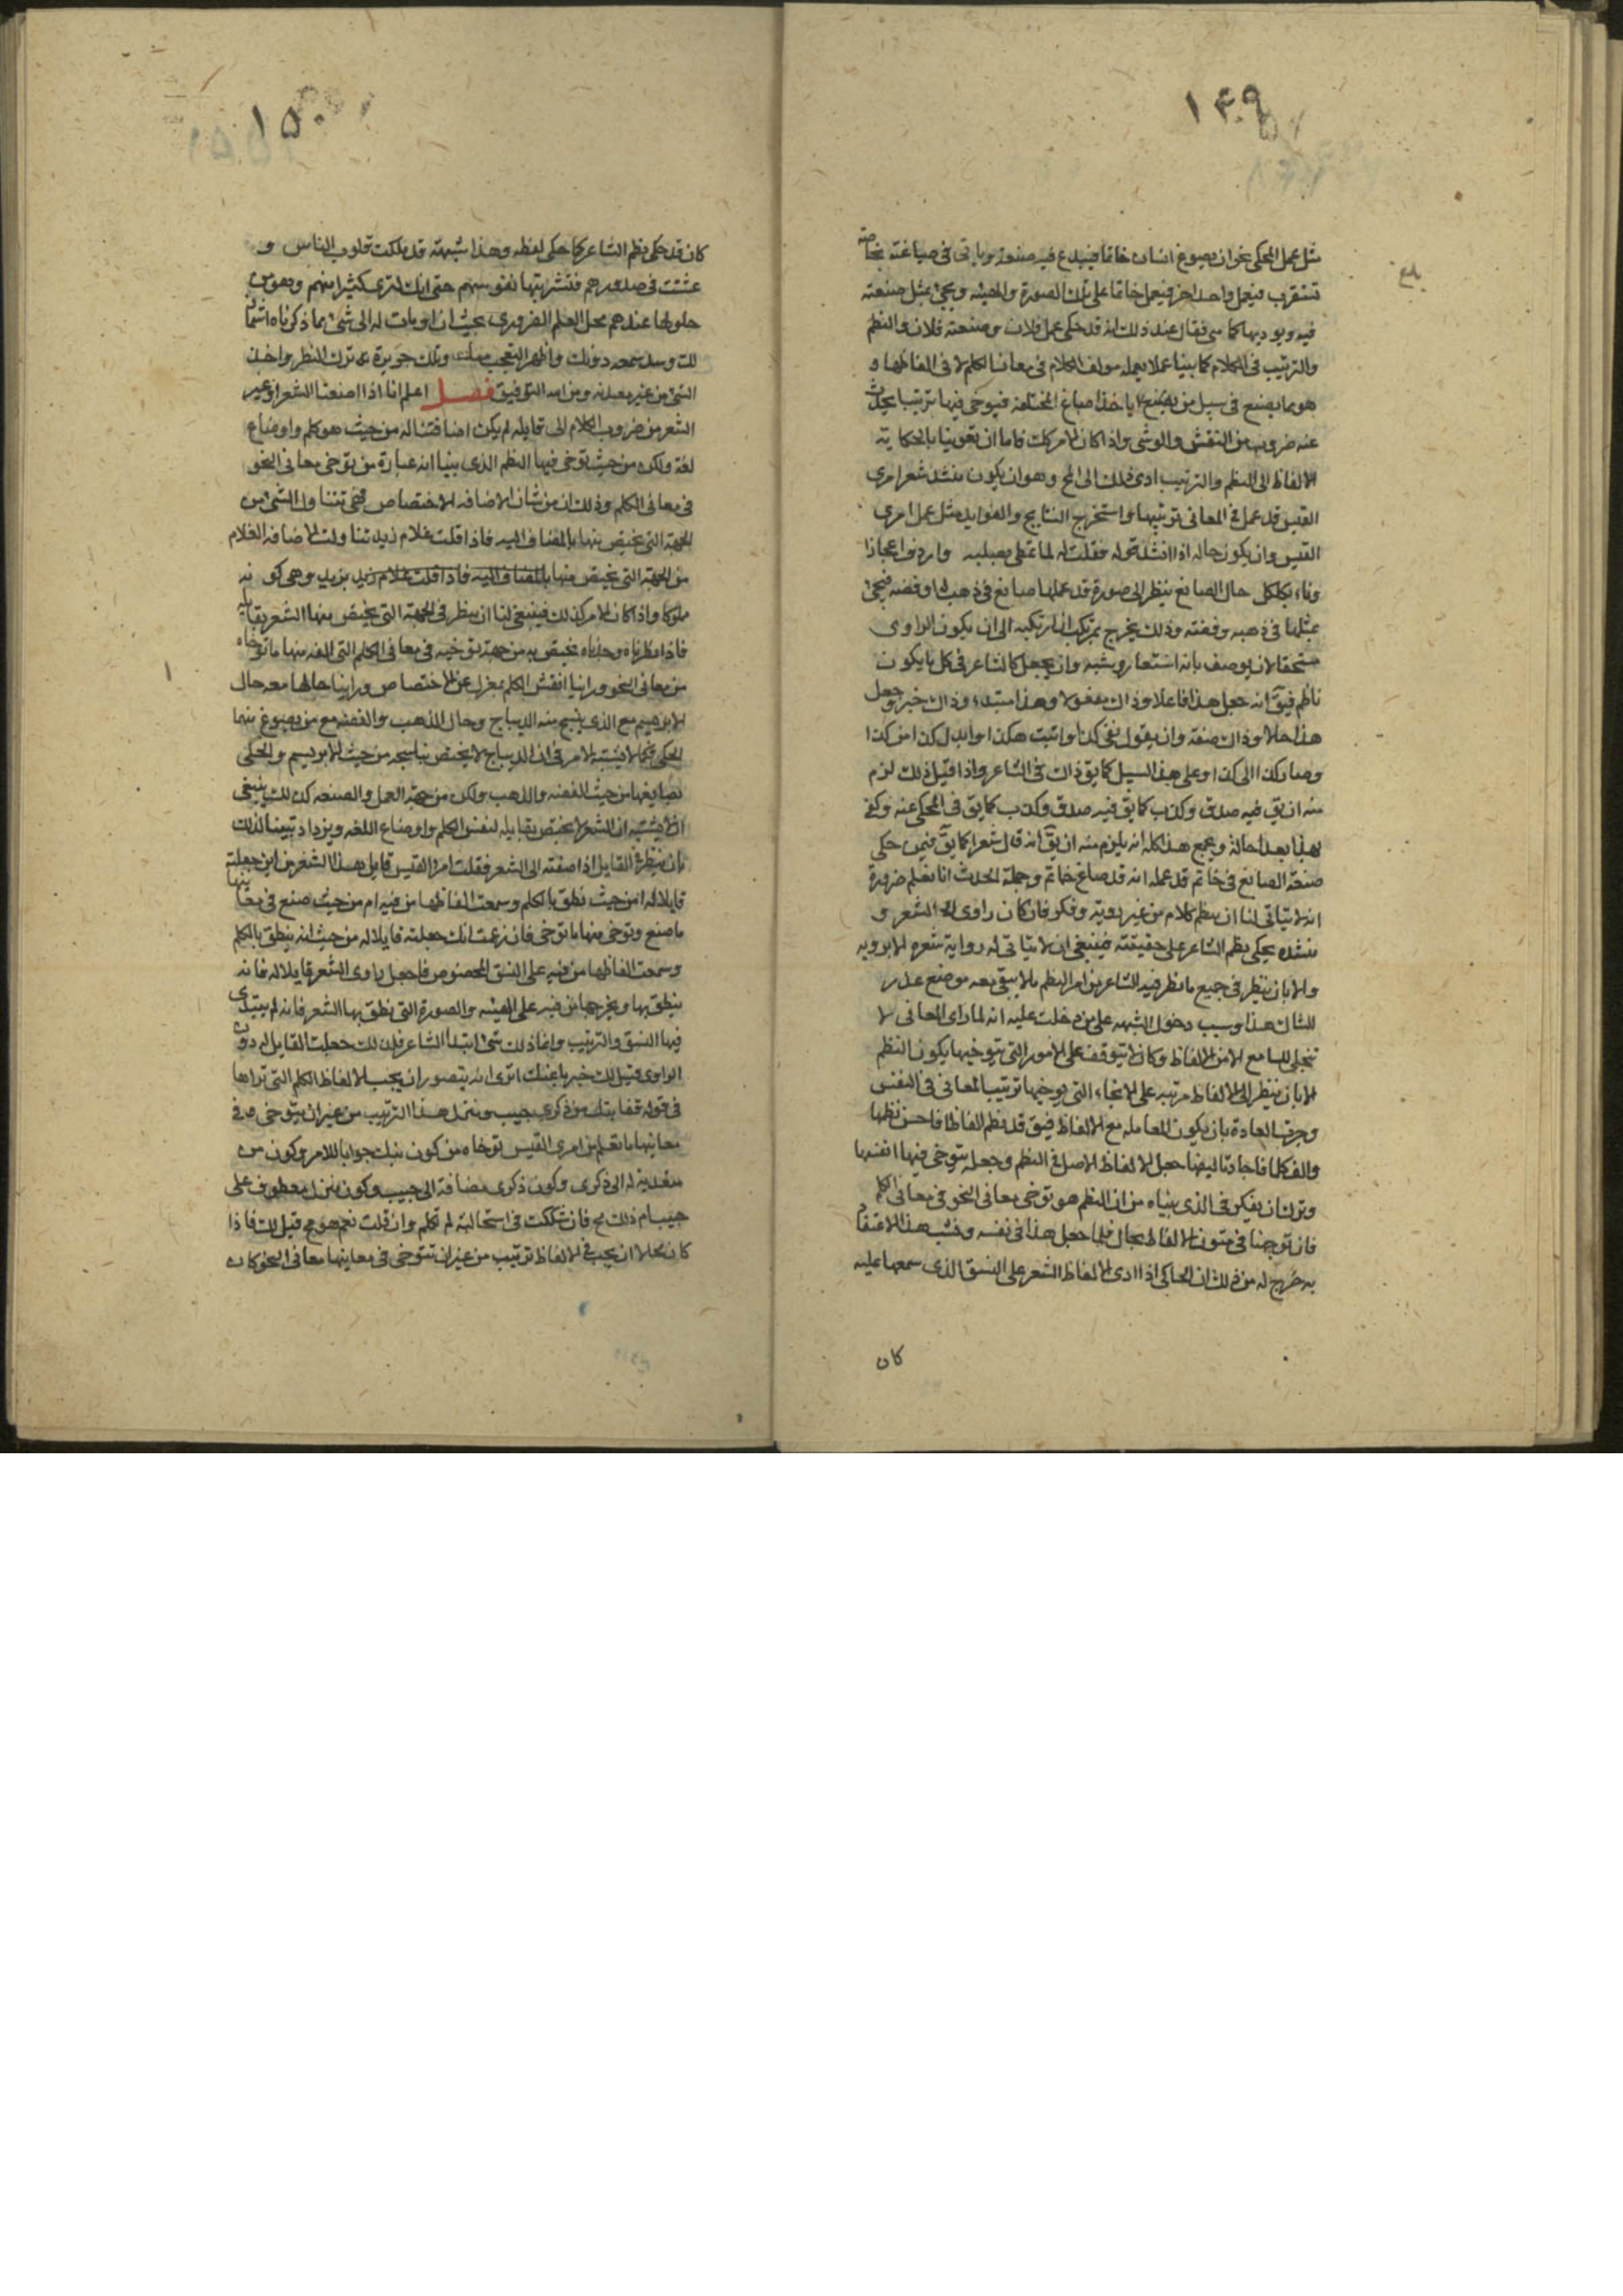 ١٤٩
مثل عمل المحكى نحو ان يصوغ انسان خاتما فيبدع فيه صنعة وياتى فى صياغته بخاصة
تستغرب فيعمل واحد اخر فيعمل خاتما على تلك الصورة والهيئه ويجئ بمثل صنعته
فيه ويوديها كما هى فيقال عند ذلك انه قد حكى عمل فلان وصنعة فلان والنظم
والترتيب فى الكلام كما بينا عملا يعمله مولف الكلام فى معانى الكلم لا فى الفاظها و
هو بما يصنع فى سبيل من ياخذ الاصباغ المختلفه فيتوخى فيها ترتيبا يحدث
عنه ضروب من النقش والوشى واذا كان الامر كذلك فاما ان تعدينا بالحكاية
الالفاظ الى النظم والترتيب ادى ذلك الى المح وهو ان يكون منشد شعر امرى
القيس قد عمل فى المعانى ترتيبها واستخرج النتايج والفوايد مثل عمل امرى
القيس وان يكون حاله اذا انشد قوله فقلت له لما تمطى بصلبه واردف اعجازا
وناء بكلكل حال الصانع ينظر الى صورة قد عملها صانع فى ذهب له او فضه فيجئ
بمثلها فى ذهبه وفضته وذلك يخرج بمرتكب ان ارتكبه الى ان يكون الراوى
مستحقا لان يوصف بانه استعار وشبه وان يجعل كالشاعر فى كل ما يكون
ناظم فيق انه جعل هذا فاعلا وذاك مفعولا وهذا مبتدء وذاك خبر وجعل
هذا حالا وذاك صفة وان يقول نفى كذا واثبت هكذا وابدل كذا من كذا
وصار كذا الى كذا وعلى هذا السبيل كما يق ذاك فى الشاعر واذا قيل ذلك لزم
منه ان يق فيه صدق وكذب كما يق فيه صدق وكذب كما يق فى المحكى عنه وكفى
بهذا بعدا حاله ويجمع هذا كله انه يلزم منه ان يق انه قال شعرا كما يق فيمن حكى
صنعة الصانع فى خاتم قد عمله انه قد صاغ خاتم وجملة الحديث انا نعلم ضرورة
انه لا يتاتى لنا ان ننظم كلام من غير روية وفكر فان كان راوى الشعر و
منشده يحكى نظم الشاعر على حقيقته فينبغى ان لا يتاتى له رواية شعره الا بروية
والا بان ينظر فى جميع ما نظر فيه الشاعر من امر النظم بالا يبقى معه موضع عذر
للشاك هذا وسبب دخول الشبهه على من دخلت عليه انه لما راى المعانى لا
تتجلى للسامع الا من الالفاظ وكان لا يتوقف على الامور التى يتوخيها يكون النظم
الا بان ينظر الى الالفاظ مرتبه على الانحاء التى يوجبها ترتيب المعانى فى النفس
وجرت العادة بان يكون المعامله مع الالفاظ فيق قد نظم الفاظا فاحسن نظمها
والف كلما فاجاد تاليفها جعل الالفاظ الاصل فى النظم وجعله يتوخى فيها انفسها
وترك ان يفكر فى الذى بيناه من ان النظم هو توخى معانى النحو فى معانى الكلم
فان توخيها فى متون الالفاظ محال فلما جعل هذا فى نفسه ونشب هذا الاعتقاد
به خرج له من ذلك ان الحاكى اذا ادى الالفاظ الشعر على النسق الذى سمعها عليه
كان
١٥٠
كان قد حكى نظم الشاعر كما حكى لفظه وهذا شبهة قد ملكت قلوب الناس و
عششت فى صدورهم وتشربتها نفوسهم حتى انك لترى كثيرا منهم وهو من
حلولها عندهم محل العلم الضرورى بحيث ان اومات له الى شئ مما ذكرناه اشمأز
لك وسد سمعه دونك واظهر التعجب منك وتلك جريرة ترك النظر واخذ
الشئ من غير معدنه ومن الله التوفيق فصل اعلم انا اذا اضفنا الشعر او غير
الشعر من ضروب الكلام الى قايله لم يكن اضافتنا له من حيث هو كلم واوضاع
لغة ولكن من حيث توخى فيها النظم الذى بينا انه عبارة من توخى معانى النحو
فى معانى الكلم وذلك ان من شان الاضافه الاختصاص فهى تتناول الشئ من
الجهة التى يختص منها بالمضاف اليه فاذا قلت غلام زيد تناولت الاضافه الغلام
من الجهة التى يختص منها بالمضاف اليه فاذا قلت غلام زيد بزيد وهى كونه
مملوكا واذا كان الامر كذلك فينبغى لنا ان ننظر فى الجهة التى يختص منها الشعر بقايله
فاذا نظرناه وجدناه يختص به من جهة توخيه فى معانى الكلم التى الفه منها ما توخاه
من معانى النحو وراينا انفس الكلم بمعزل عن الاختصاص وراينا حالها معه حال
الابريسم مع الذى ينسج منه الديباج وحال الذهب والفضه مع من يصوغ منها
الحلى فكما لا يشتبه الامر فى ان الديباج لا يختص بناسجه من حيث الابريسم والحلى
بصايغها من حيث الفضه والذهب ولكن من جهة العمل والصنعه كذلك ينبغى
ان لا يشتبه ان الشعر لا يختص بقايله لنفس الكلم واوضاع اللغه ويزداد تبينا لذلك
بان ينظر فى القايل اذا اضفته الى الشعر فقلت امرؤ القيس قايل هذا الشعر من اين جعلته
قايلا له امن حيث نطق بالكلم وسمعت الفاظها من فيه ام من حيث صنع فى معانيها
ما صنع وتوخى منها ما توخى فان زعمت انك جعلته قايلا له من حيث انه ينطق بالكلم
وسمعت الفاظها من فيه على النسق المخصوص فاجعل راوى الشعر قايلا له فانه
ينطق بها ويخرجها من فيه على الهيئه والصورة التى نطق بها الشعر فانه لم يبتدى
فيها النسق والترتيب وانما ذلك شئ ابتدأ الشاعر فلذلك جعلت القايل له دون
الراوى قيل لك خبرنا عنك اترى انه يتصور ان يجب لالفاظ الكلم التى تراها
فى قوله قفا نبك من ذكرى حبيب ومنزل هذا الترتيب من غير ان يتوخى فى
معانيها ما تعلم من امرى القيس توخاه من كون نبك جوابا للامر وكون من
معدية له الى ذكرى وكون ذكرى مضافة الى حبيب وكون منزل معطوف على
حبيب ام ذلك مح فان شككت فى استحالته لم تكلم وان قلت نعم هو مح قيل لك فاذا
كان محلا ان يجب فى الالفاظ ترتيب من غير ان يتوخى فى معانيها معانى النحو كان